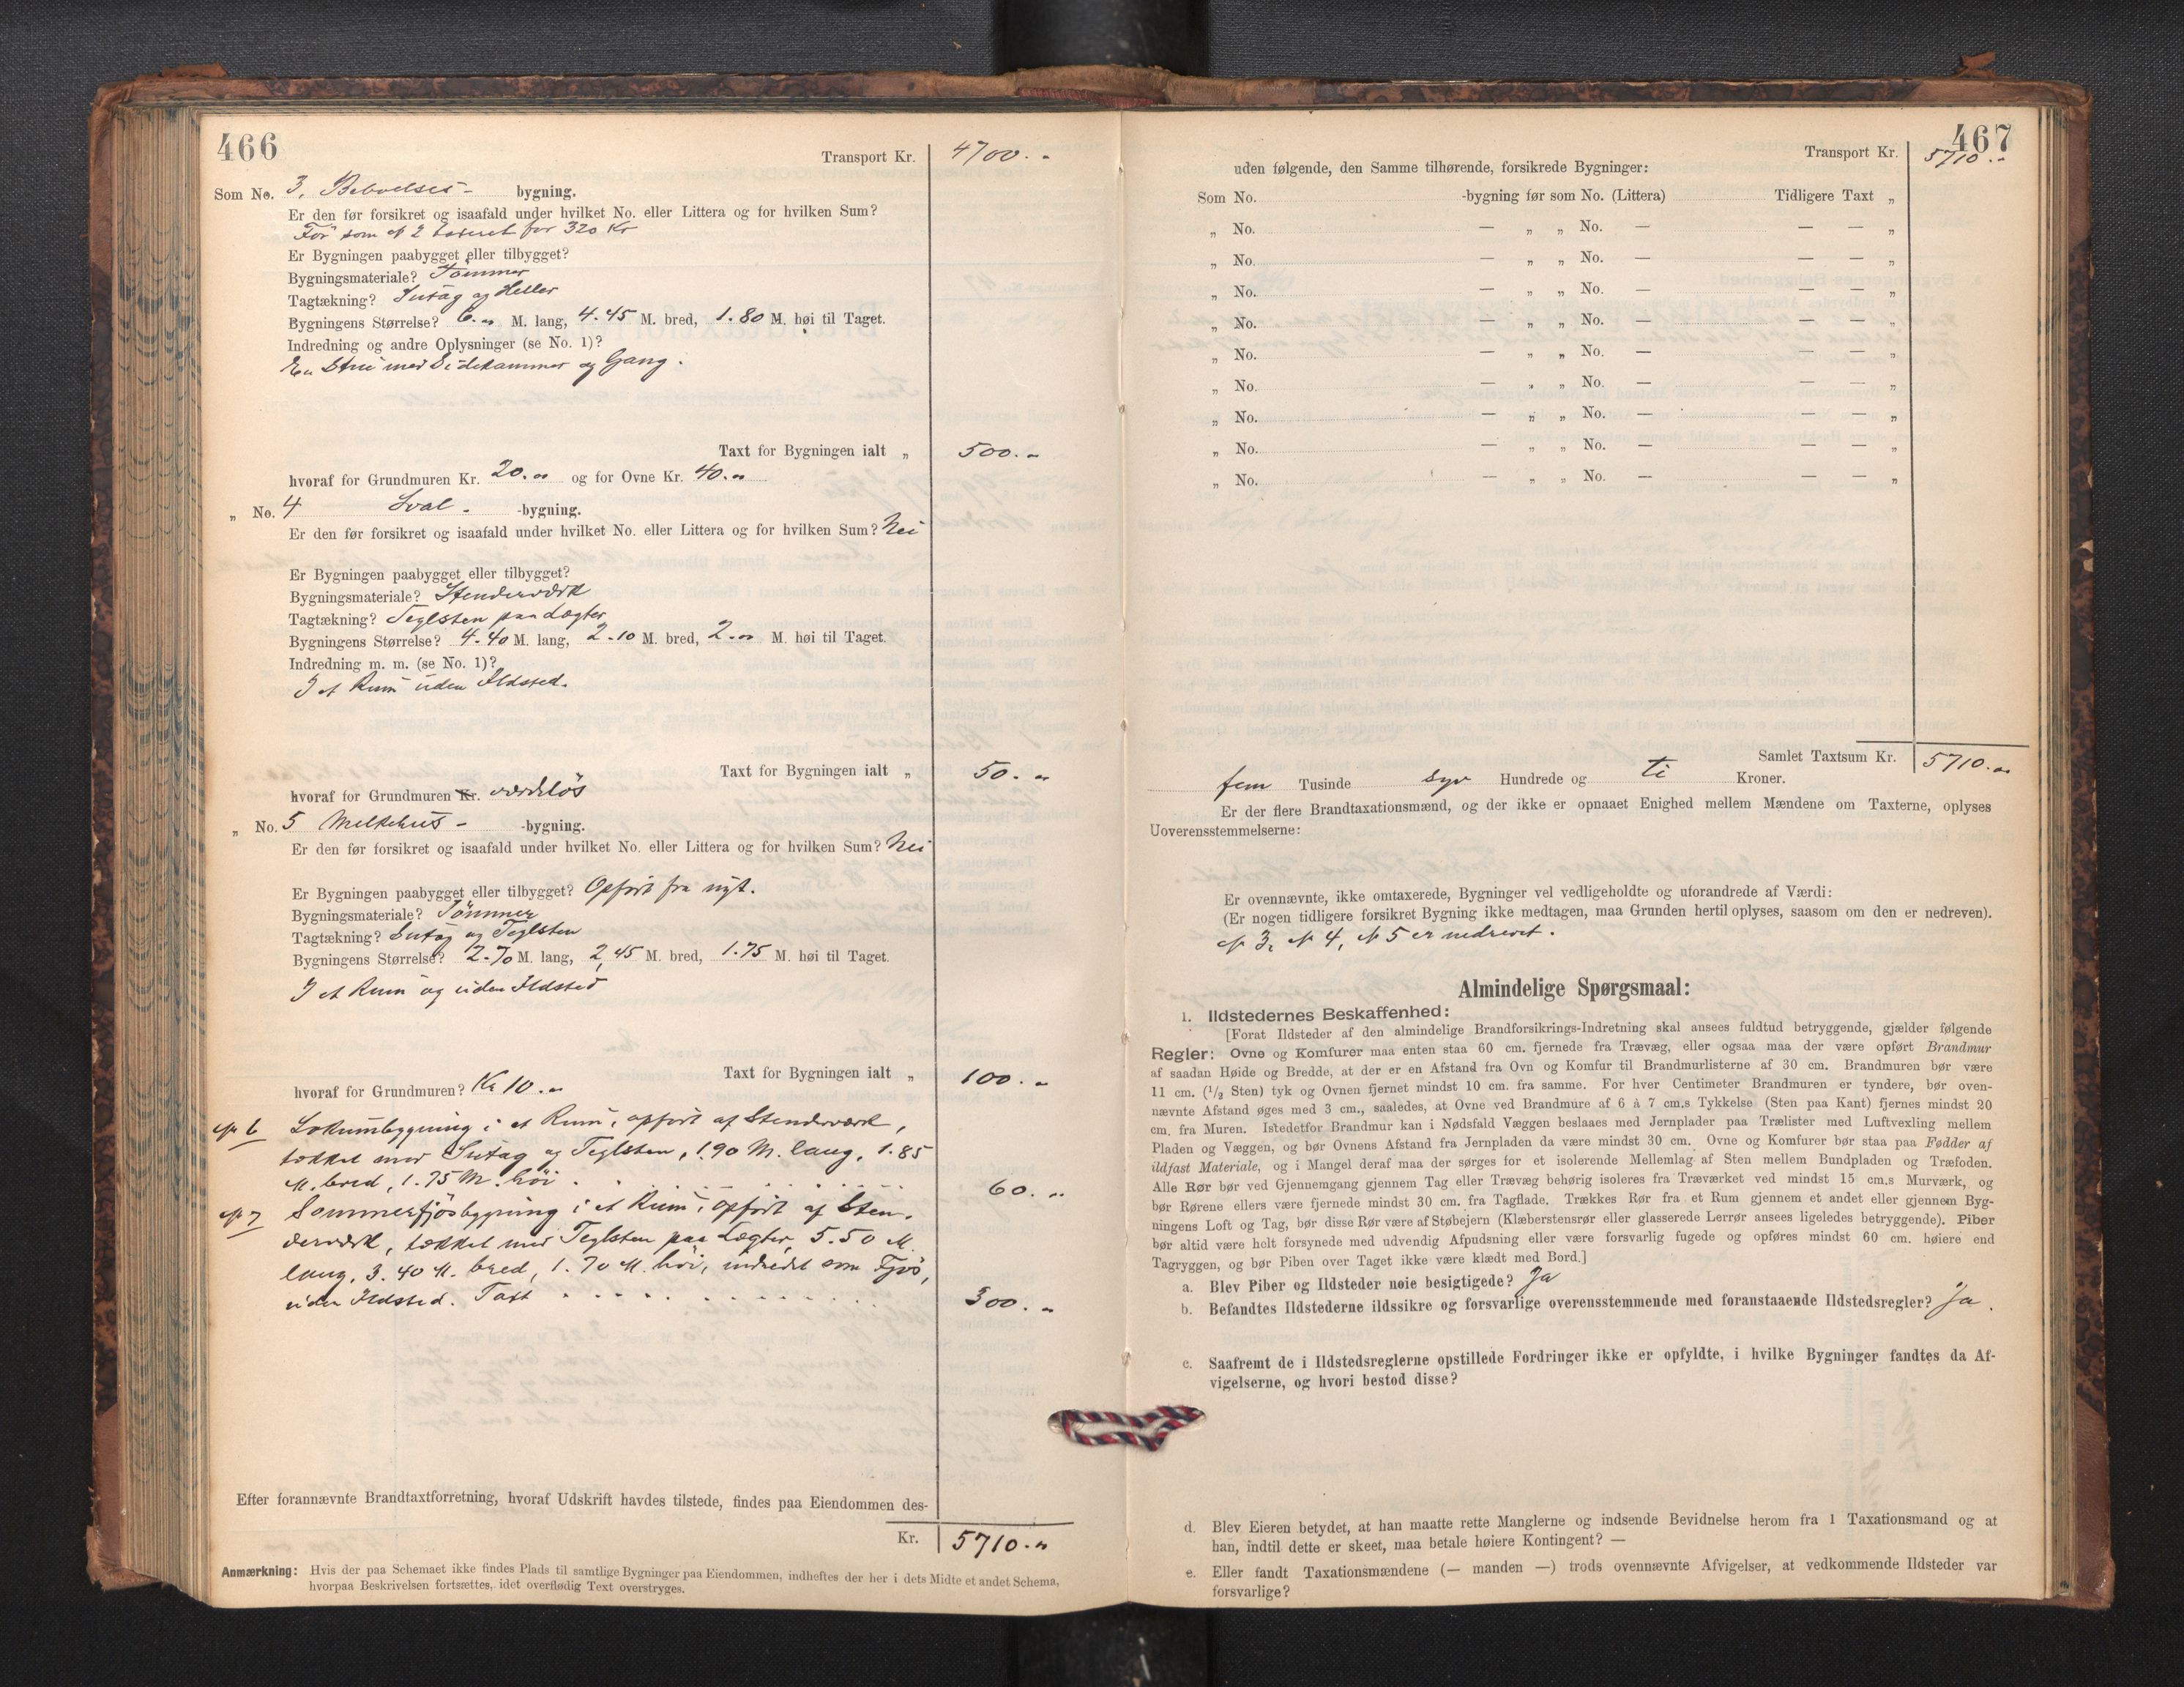 466
Transport Kr. 4700.„
Som No. 3, Beboelses- bygning.
Er den før forsikret og isaafald under hvilket No. eller Littera og for hvilken Sum?
Før som № 2 taxeret for 320 Kr
Er Bygningen paabygget eller tilbygget?
Bygningsmateriale? Tømmer
Tagtækning? Sutag og Heller
Bygningens Størrelse? 6.„ M. lang, 4.45 M. bred, 1.80 M. høi til Taget.
Indredning og andre Oplysninger (se No. 1)?
En Stue med Sidekammer og Gang.
Taxt for Bygningen ialt „ 500.„
hvoraf for Grundmuren Kr. 20.„ og for Ovne Kr. 40.„
„ No. 4 Sval- -bygning.
Er den før forsikret og isaafald under hvilket No. eller Littera og for hvilken Sum? Nei
Er Bygningen paabygget eller tilbygget?
Bygningsmateriale? Stenderværk
Tagtækning? Teglsten paa Lægter
Bygningens Størrelse? 4.40 M. lang, 2.10 M. bred, 2.„ M. høi til Taget.
Indredning m. m. (se No. 1)?
I et Rum uden Ildsted.
Taxt for Bygningen ialt „ 50.„
hvoraf for Grundmuren Kr. værdiløs
„ No. 5 Melkehus- -bygning.
Er den før forsikret og isaafald under hvilket No. eller Littera og for hvilken Sum? Nei
Er Bygningen paabygget eller tilbygget? Opført fra nyt.
Bygningsmateriale? Tømmer
Tagtækning? Sutag og Teglsten
Bygningens Størrelse? 2.70 M. lang, 2,45 M. bred, 1.75 M. høi til Taget.
I et Rum og uden Ildsted
Taxt for Bygningen ialt „ 100.„
hvoraf for Grundmuren? Kr 10.„
№ 6 Lokumbygning i et Rum, opført af Stenderværk,
tækket med Sutag og Teglsten, 1.90 M. lang, 1.85
M. bred, 1.75 M. høi . . . . . . . . 60.„
№ 7 Sommerfjøsbygning i et Rum, opført af Sten-
derværk, tækket med Teglsten paa Lægter, 5.50 M.
lang, 3.40 M. bred, 1.70 M. høi, indredet som Fjøs,
uden Ildsted. Taxt . . . . . . . . 300.„
Efter forannævnte Brandtaxtforretning, hvoraf Udskrift havdes tilstede, findes paa Eiendommen des-
Kr. 5710.„
Anmærkning: Hvis der paa Schemaet ikke findes Plads til samtlige Bygninger paa Eiendommen, indheftes der her i dets Midte et andet Schema,
hvorpaa Beskrivelsen fortsættes, idet overflødig Text overstryges.
467
Transport Kr. 5710.„
uden følgende, den Samme tilhørende, forsikrede Bygninger:
Som No. -bygning før som No. (Littera) Tidligere Taxt „
„ No. — „ „ No. — — — „
„ No. — „ „ No. — — — „
„ No. — „ „ No. — — — „
„ No. — „ „ No. — — — „
„ No. — „ „ No. — — — „
„ No. — „ „ No. — — — „
„ No. — „ „ No. — — — „
„ No. — „ „ No. — — — „
„ No. — „ „ No. — — — „
Samlet Taxtsum Kr. 5710.„
fem Tusinde syv Hundrede og ti Kroner.
Er der flere Brandtaxationsmænd, og der ikke er opnaaet Enighed mellem Mændene om Taxterne, oplyses
Uoverensstemmelserne:
Er ovennævnte, ikke omtaxerede, Bygninger vel vedligeholdte og uforandrede af Værdi:
(Er nogen tidligere forsikret Bygning ikke medtagen, maa Grunden hertil oplyses, saasom om den er nedreven).
№ 3, № 4, № 5 er nedrevet.
Almindelige Spørgsmaal:
1. Ildstedernes Beskaffenhed:
[Forat Ildsteder af den almindelige Brandforsikrings-Indretning skal ansees fuldtud betryggende, gjælder følgende
Regler: Ovne og Komfurer maa enten staa 60 cm. fjernede fra Trævæg, eller ogsaa maa der være opført Brandmur
af saadan Høide og Bredde, at der er en Afstand fra Ovn og Komfur til Brandmurlisterne af 30 cm. Brandmuren bør være
11 cm. (1/2 Sten) tyk og Ovnen fjernet mindst 10 cm. fra samme. For hver Centimeter Brandmuren er tyndere, bør oven-
nævnte Afstand øges med 3 cm., saaledes, at Ovne ved Brandmure af 6 à 7 cm.s Tykkelse (Sten paa Kant) fjernes mindst 20
cm. fra Muren. Istedetfor Brandmur kan i Nødsfald Væggen beslaaes med Jernplader paa Trælister med Luftvexling mellem
Pladen og Væggen, og bør Ovnens Afstand fra Jernpladen da være mindst 30 cm. Ovne og Komfurer bør staa paa Fødder af
ildfast Materiale, og i Mangel deraf maa der sørges for et isolerende Mellemlag af Sten mellem Bundpladen og Træfoden.
Alle Rør bør ved Gjennemgang gjennem Tag eller Trævæg behørig isoleres fra Træværket ved mindst 15 cm.s Murværk, og
bør Rørene ellers være fjernede mindst 30 cm. fra Tagflade. Trækkes Rør fra et Rum gjennem et andet eller gjennem Byg-
ningens Loft og Tag, bør disse Rør være af Støbejern (Klæberstensrør eller glasserede Lerrør ansees ligeledes betryggende). Piber
bør altid være helt forsynede med udvendig Afpudsning eller være forsvarlig fugede og opføres mindst 60 cm. høiere end
Tagryggen, og bør Piben over Taget ikke være klædt med Bord.]
a. Blev Piber og Ildsteder nøie besigtigede? Ja
b. Befandtes Ildstederne ildssikre og forsvarlige overensstemmende med foranstaaende Ildstedsregler? Ja.
c. Saafremt de i Ildstedsreglerne opstillede Fordringer ikke er opfyldte, i hvilke Bygninger fandtes da Af-
vigelserne, og hvori bestod disse?
d. Blev Eieren betydet, at han maatte rette Manglerne og indsende Bevidnelse herom fra 1 Taxationsmand og at
han, indtil dette er skeet, maa betale høiere Kontingent? —
e. Eller fandt Taxationsmændene (— manden —) trods ovennævnte Afvigelser, at vedkommende Ildsteder var
forsvarlige?